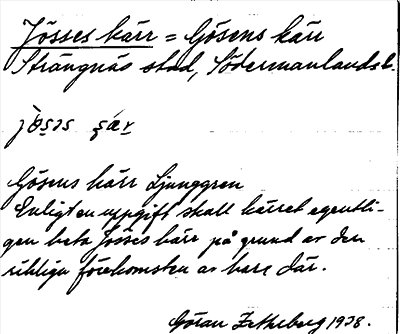 Jösses kärr = Gösens kärr
Strängnäs stad, Södermanlands l.
Gösens kärr Ljunggren
Enligt en uppgift skall kärret egentli-
gen heta Jösses kärr på grund av den
rikliga förekomsten av bars där.
Göran Zetherberg 1938.